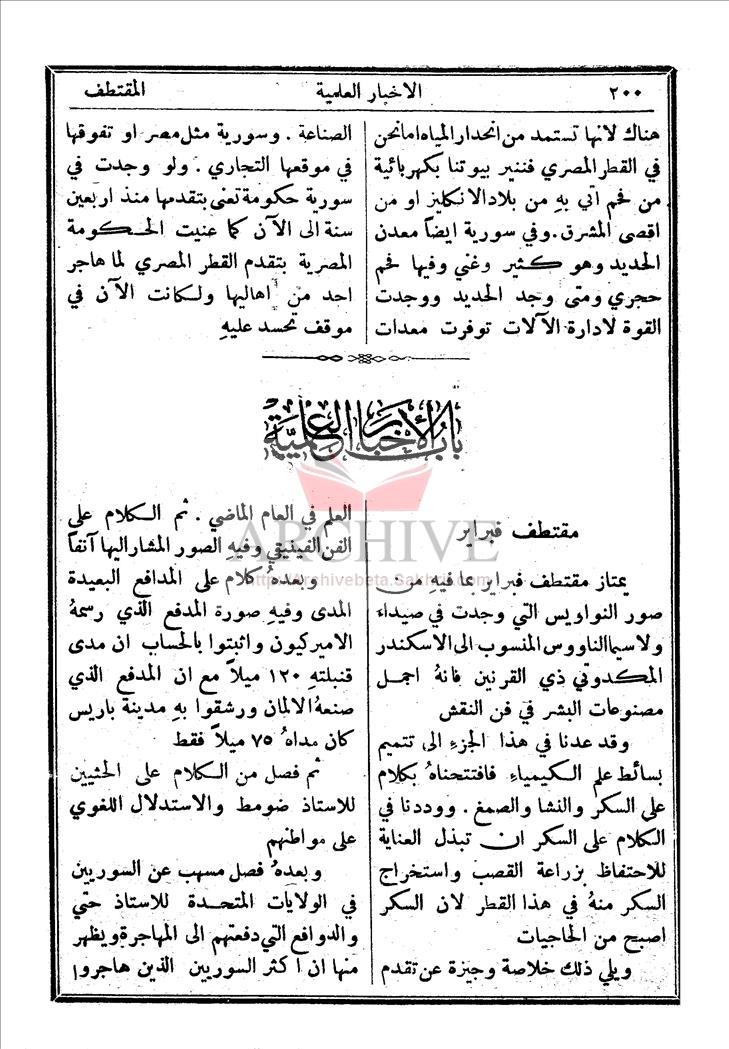 ٢٠٠ الاخبار العلمية المقتطف
هناك لانها تستمد من انحدار المياه اما نحن
في القطر المصري فننير بيوتنا بكهربائية
من فحم اتي بهِ من بلاد الانكليز او من
اقصى المشرق. وفي سورية ايضاً معدن
الحديد وهو كثير وغني وفيها فحم
حجري ومتى وجد الحديد ووجدت
القوة لادارة الآلات توفرت معدات
الصناعة. وسورية مثل مصر او تفوقها
في موقعها التجاري. ولو وجدت في
سورية حكومة تعنى بتقدمها منذ اربعين
سنة الى الآن كما عنيت الحكومة
المصرية بتقدم القطر المصري لما هاجر
احد من اهاليها ولكانت الآن في
موقف تحسد عليهِ
باب الأخبار العلمية
مقتطف فبراير
يمتاز مقتطف فبراير بما فيهِ من
صور النواويس التي وجدت في صيداء
ولا سيما الناووس المنسوب الى الاسكندر
المكدوني ذي القرنين فانهُ اجمل
مصنوعات البشر في فن النقش
وقد عدنا في هذا الجزء الى تتميم
بسائط علم الكيمياء فافتتحناهُ بكلام
على السكر والنشا والصمغ. ووددنا في
الكلام على السكر ان تبذل العناية
للاحتفاظ بزراعة القصب واستخراج
السكر منهُ في هذا القطر لان السكر
اصبح من الحاجيات
ويلي ذلك خلاصة وجيزة عن تقدم
العلم في العام الماضي. ثم الكلام على
الفن الفينيقي وفيهِ الصور المشار اليها آنفاً
وبعدهُ كلام على المدافع البعيدة
المدى وفيهِ صورة المدفع الذي رسمهُ
الاميركيون واثبتوا بالحساب ان مدى
قنبلتهِ ١٢٠ ميلاً مع ان المدفع الذي
صنعهُ الالمان ورشقوا بهِ مدينة باريس
كان مداهُ ٧٥ ميلاً فقط
ثم فصل من الكلام على الحثيين
للاستاذ ضومط والاستدلال اللغوي
على مواطنهم
وبعدهُ فصل مسهب عن السوريين
في الولايات المتحدة للاستاذ حتي
والدوافع التي دفعتهم الى المهاجرة ويظهر
منها ان اكثر السوريين الذين هاجروا
ARCHIVE
http://Archivebeta.Sakhrit.com